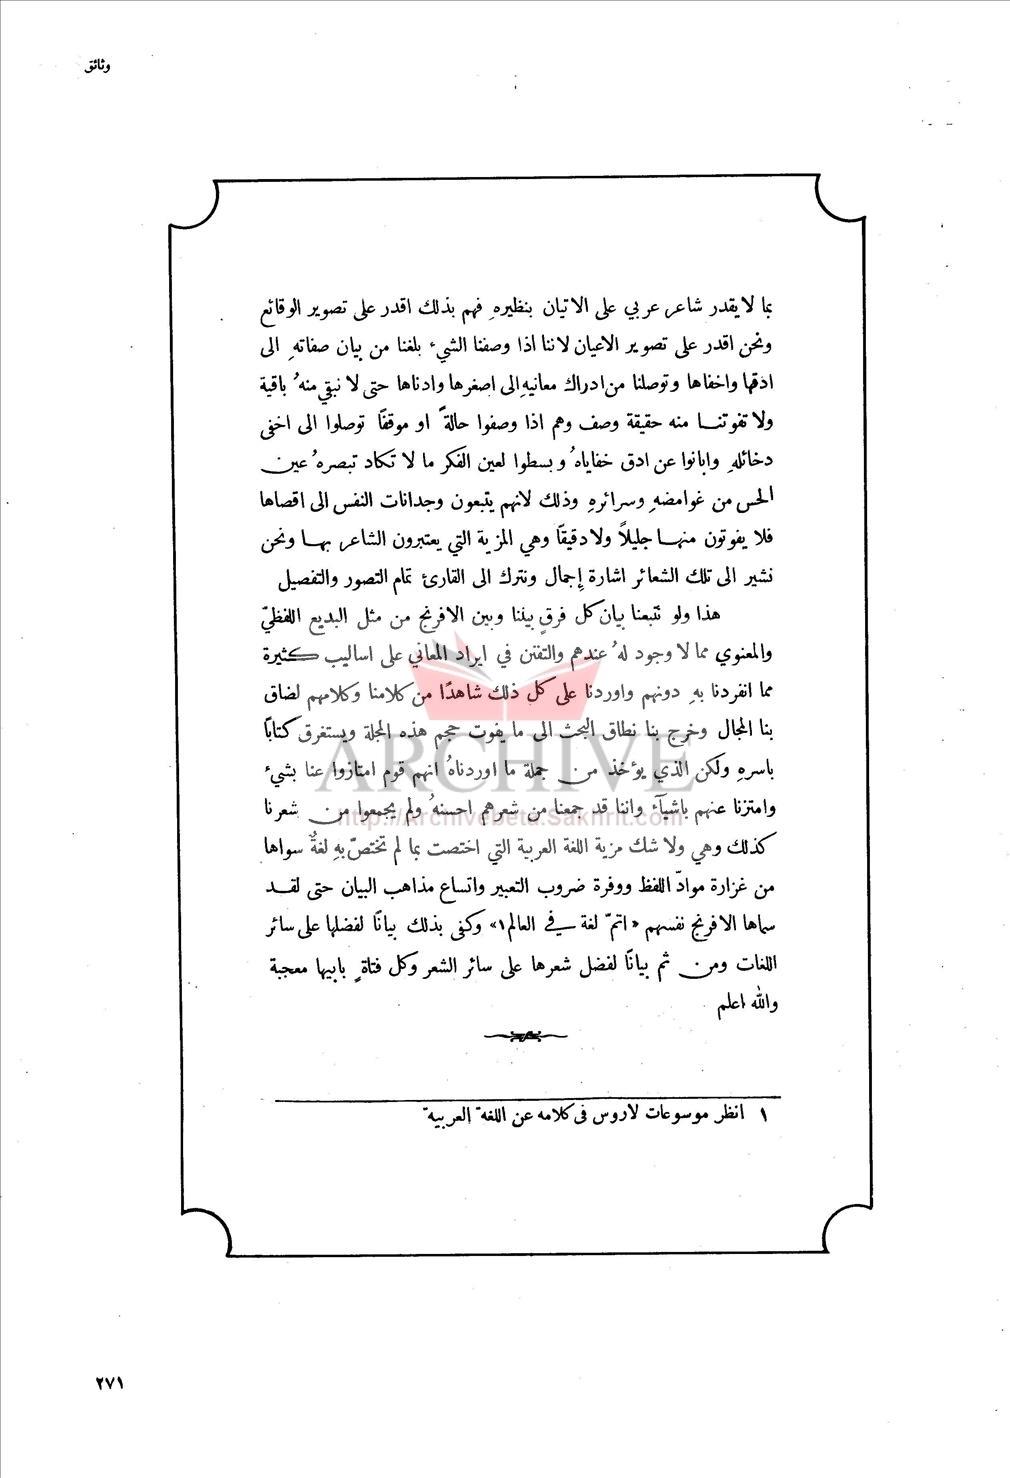 وثائق
بما لا يقدر شاعر عربي على الاتيان بنظيرهِ فهم بذلك اقدر على تصوير الوقائع
ونحن اقدر على تصوير الاعيان لاننا اذا وصفنا الشيء بلغنا من بيان صفاتهِ الى
ادقها واخفاها وتوصلنا من ادراك معانيهِ الى اصغرها وادناها حتى لا نبقي منهُ باقية
ولا تفوتنا منه حقيقة وصف وهم اذا وصفوا حالةً او موقفًا توصلوا الى اخفى
دخائلهِ وابانوا عن ادق خفاياهُ وبسطوا لعين الفكر ما لا تكاد تبصرهُ عين
الحس من غوامضهِ وسرائرهِ وذلك لانهم يتبعون وجدانات النفس الى اقصاها
فلا يفوتون منها جليلًا ولا دقيقًا وهي المزية التي يعتبرون الشاعر بها ونحن
نشير الى تلك الشعائر اشارة إجمال ونترك الى القارئ تمام التصور والتفصيل
هذا ولو تتبعنا بيان كل فرقٍ بيننا وبين الافرنج من مثل البديع اللفظيّ
والمعنوي مما لا وجود لهُ عندهم والتفنن في ايراد المعاني على اساليب كثيرة
مما انفردنا بهِ دونهم واوردنا على كل ذلك شاهدًا من كلامنا وكلامهم لضاق
بنا المجال وخرج بنا نطاق البحث الى ما يفوت حجم هذه المجلة ويستغرق كتابًا
باسرهِ ولكن الذي يؤخذ من جملة ما اوردناهُ انهم قوم امتازوا عنا بشيء
وامتزنا عنهم باشيآء واننا قد جمعنا من شعرهم احسنهُ ولم يجمعوا من شعرنا
كذلك وهي ولا شك مزية اللغة العربية التي اختصت بما لم تختصّ بهِ لغةٌ سواها
من غزارة موادّ اللفظ ووفرة ضروب التعبير واتساع مذاهب البيان حتى لقد
سماها الافرنج نفسهم « اتمّ لغة في العالم١» وكفى بذلك بيانًا لفضلها على سائر
اللغات ومن ثم بيانًا لفضل شعرها على سائر الشعر وكل فتاةٍ بابيها معجبة
والله اعلم
١ انظر موسوعات لاروس في كلامه عن اللغة العربية
٢٧١
ARCHIVE
http://Archivebeta.Sakhrit.com